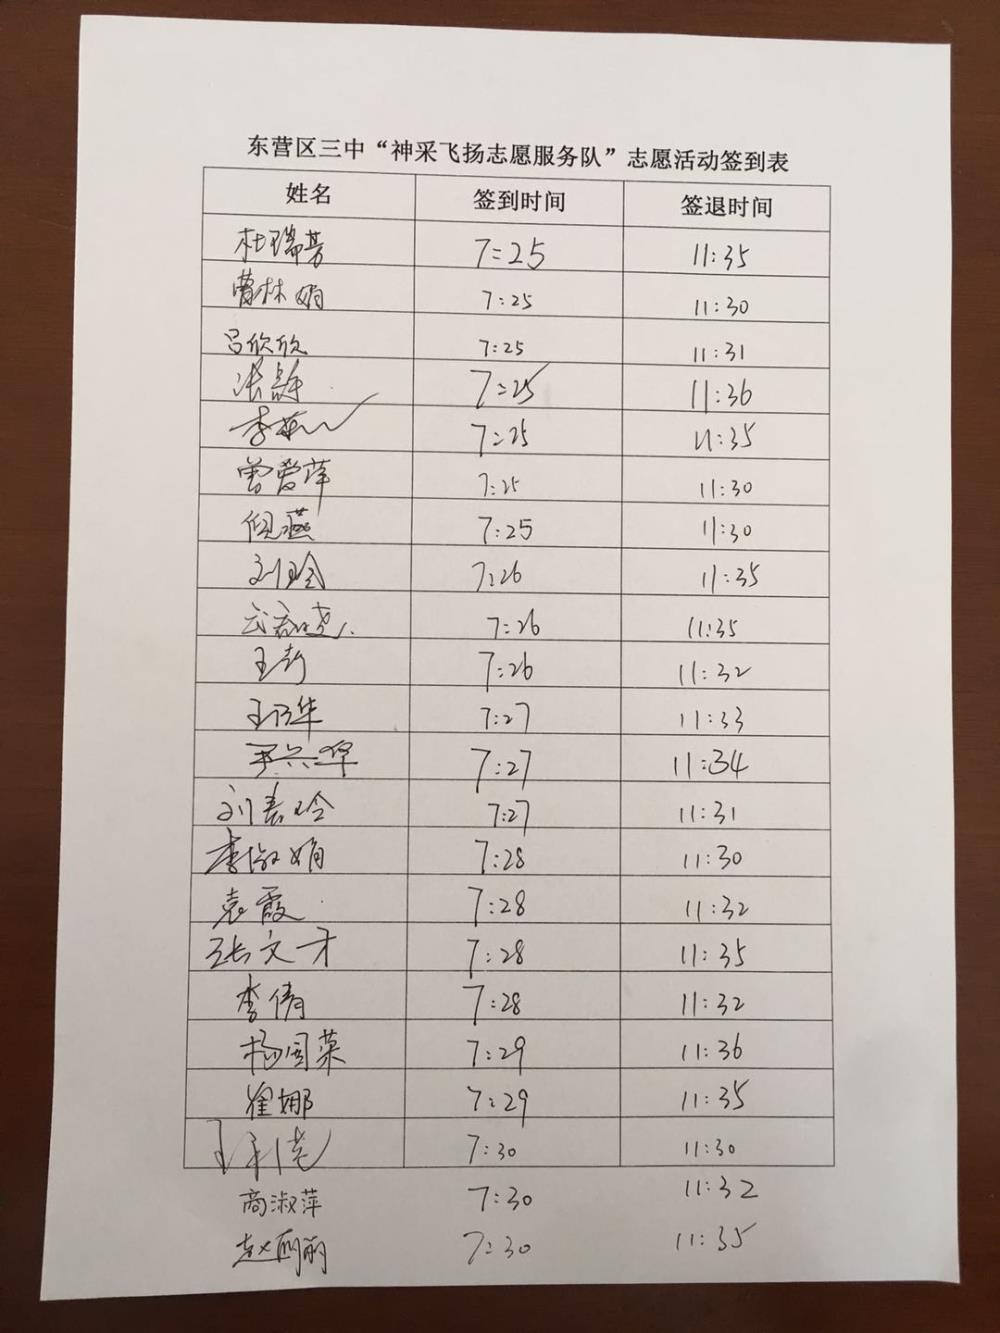 东营区三中“神采飞扬志愿服务队”志愿活动签到表
姓名 签到时间 签退时间
杜瑞芳 7:25 11:35
曹林娟 7:25 11:30
吕欣欣 7:25 11:31
张 7:25 11:36
李 7:25 11:35
曾爱萍 7:25 11:30
倪燕 7:25 11:30
刘玲 7:26 11:35
7:26 11:35
王 7:26 11:32
王乃华 7:27 11:33
7:27 11:34
刘春玲 7:27 11:31
李淑娟 7:28 11:30
袁霞 7:28 11:32
张文才 7:28 11:35
李倩 7:28 11:32
杨国菜 7:29 11:36
崔娜 7:29 11:35
王 7:30 11:30
商淑萍 7:30 11:32
赵丽丽 7:30 11:35